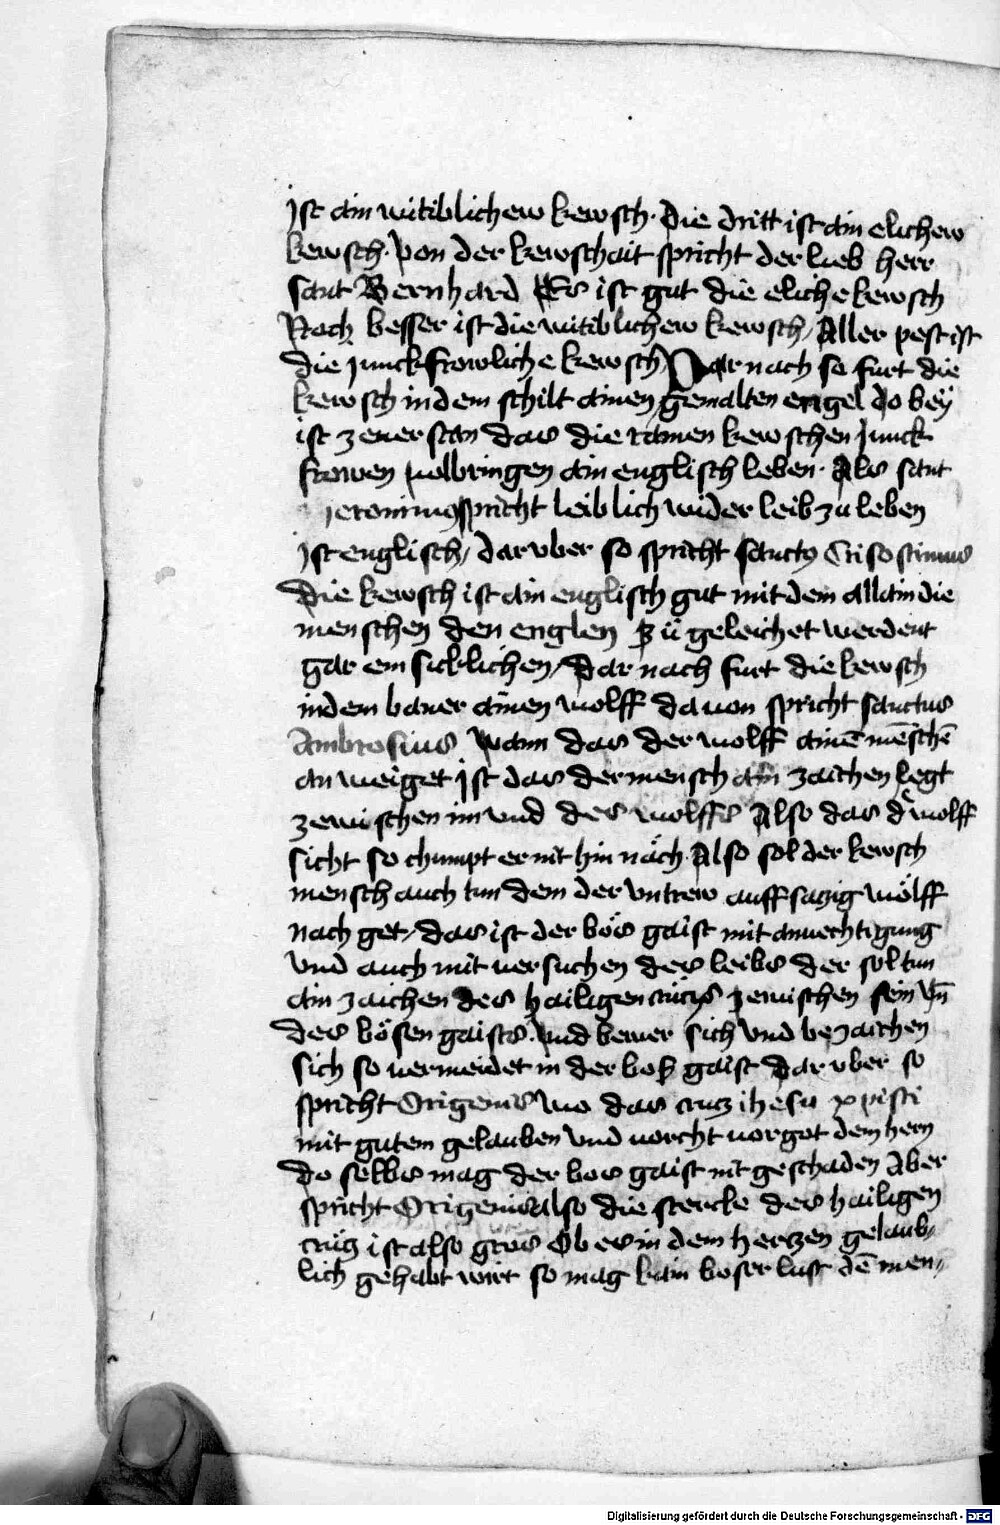 ist ain witiblichew kewsch · Die dritt ist ain elichew
kewsch · von der kewschait spricht der lieb herr
sant Bernhard Es ist gut die eliche kewsch
Noch besser ist die witiblichew kewsch / Aller pest ist
die junckfrowliche kewsch / Darnach so furt die
kewsch in dem schilt ainen gemalten engel do bey
ist zeuerstan das die rainen kewschen junck
frowen uolbringen ain englisch leben · Als sant
jeronimus spricht leiblich wider leib zu leben
ist englisch / dar vber so spricht sanctus Crisostimus
Die kewsch ist ain englisch gut mit dem allain die
menschen den englen zü geleichet werdent
gar einsicklichen / Dar nach furt die kewsch
in dem baner ainen wolff da uon spricht sanctus
Ambrosius Wann das der wolff ainē mēschē
an weiget ist das der mensch ain zaichen legt
zewischen im vnd des wolffs Also das der wolff
sicht so chumpt er nit hin näch · Also sol der kewsch
mensch auch tun dem der vntrew auffsatzig wölff
nach get / das ist der bös gaist mit anuechtigung
vnd auch mit uersuchen des leibs der sol tun
ain zaichen des hailigen crücis zewischen sein vn̄
des bösen gaists · vnd bewer sich vnd bezaichen
sich so uermeidet in der bos gaist Dar vber so
spricht Origenis wo das crucz ihesu xpisti
mit gutem gelauben vnd uorcht uor got dem hern
do selbs mag der bos gaist nit geschaden Aber
spricht Origenis also die stercke des hailigen
crütz ist also gros Ob es in dem hertzen gelaub-
lich gehabt wirt so mag kain boser lust dē men-
Digitalisierung gefördert durch die Deutsche Forschungsgemeinschaft - DFG